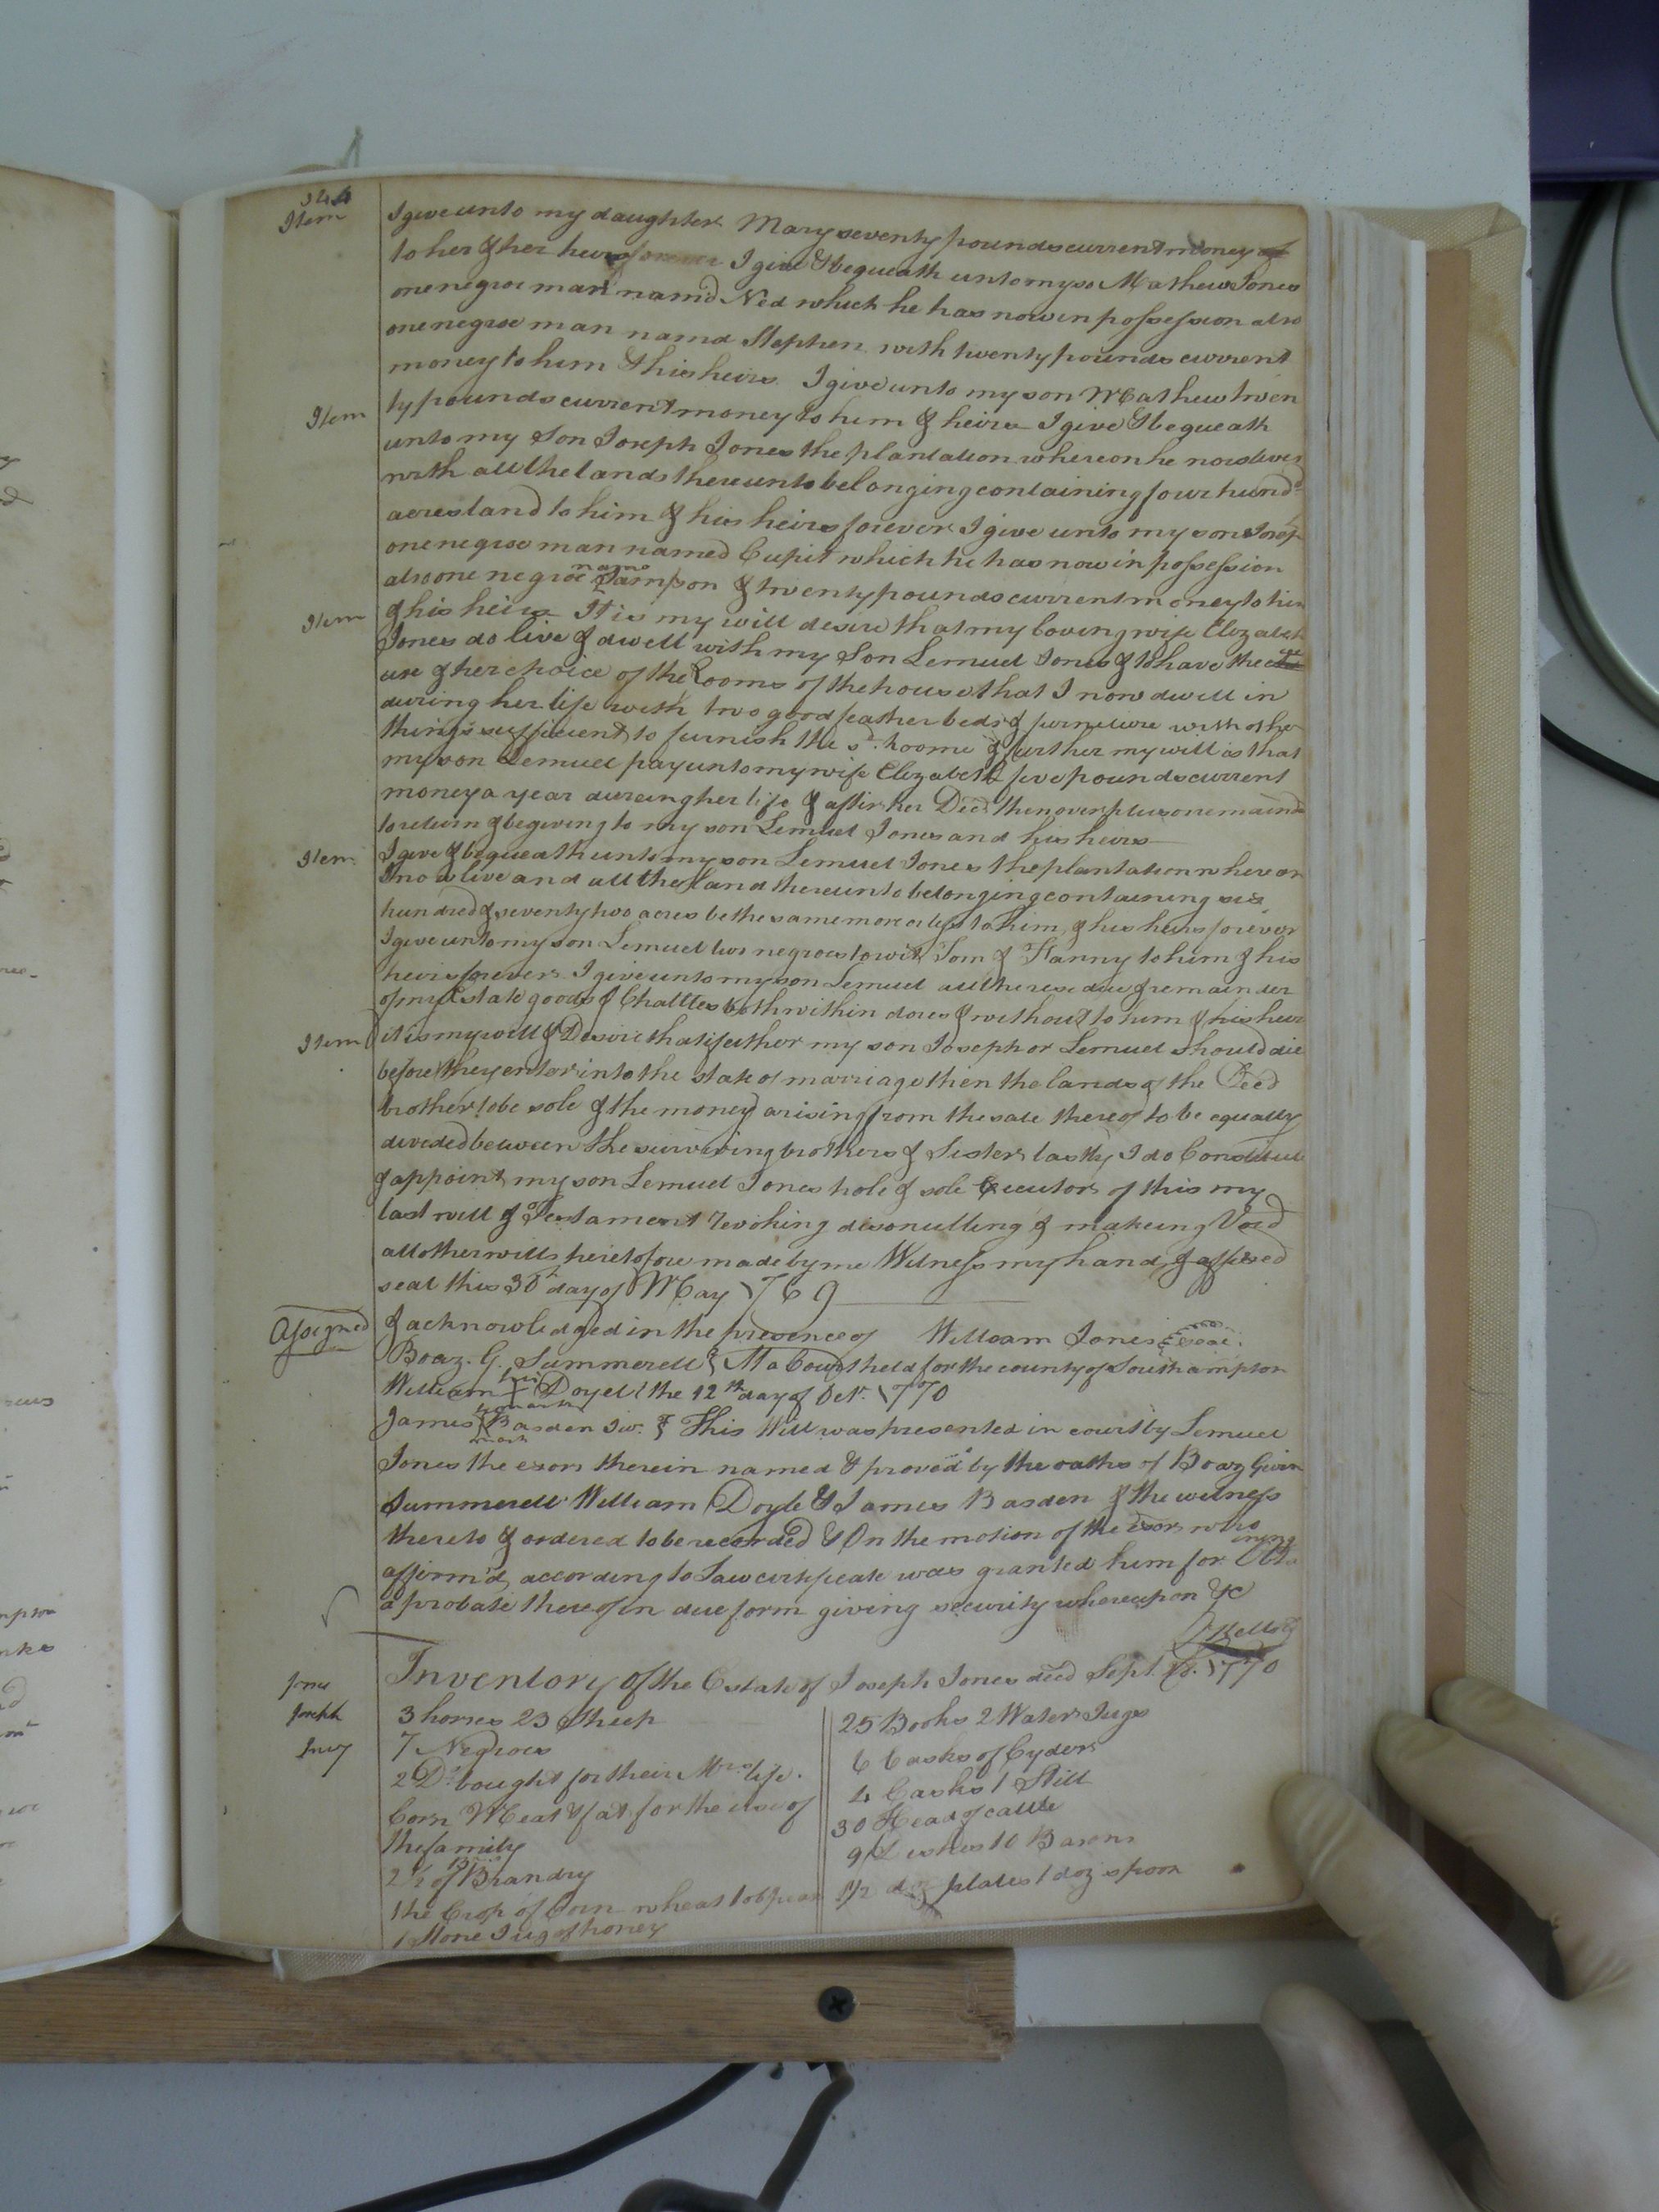 344
Item I give unto my daughter Mary seventy pounds current money
to her & her heirs forever I give & bequeath unto my so Mathew Jones
one negroe man nam'd Ned which he has now in possession also
one negroe man namd Stephen with twenty pounds current
money to him & his heirs I give unto my son Mathew twen
Item ty pounds current money to him & heirs I give & bequeath
unto my Son Joseph Jones the plantation whereon he now lives
with all the lands thereunto belonging containing four hund.d
acres land to him & his heirs forever I give unto my son Josep
one negroe man named Cupit which he has now in possession
also one negroe name Sampson & twenty pounds current money to him
Item & his heirs It is my will desire that my loving wife Elizabeth
Jones do live & dwell with my Son Lemuel Jones & to have the
use of her choice of the Rooms of the house that I now dwell in
during her life with two good feather beds & furneture with other
things sufficient to furnish the sd. roome & further my will is that
my son Lemuel pay unto my wife Elizabeth five pounds current
money a year dureing her life & after her Decd. then overplus or remaind
to return & be giving to my son Lemuel Jones and his heirs
Item I give & bequeath unto my son Lemuel Jones the plantation whereon
I now live and all the land thereunto belonging containing six
hundred & seventy two acres be the same more or less to him & his heirs forever
I give unto my son Lemuel two negroes to wit Tom & Fanny to him & his
heirs forever. I give unto my son Lemuel all the resedue & remainder
of my Estate goods & Chattles both within dores & without to him & his heirs
Item it is my will & Desire that if eather my son Joseph or Lemuel should die
before they enter into the state of marriage then the lands of the Decd
brother to be sole & the money arising from the sale thereof to be equally
devided between the surviving brothers & Sisters lastly I do Constitute
& appoint my son Lemuel Jones hole & sole Executor of this my
last will & Testament revoking disonulling & makeing Void
all other wills heretofore made by me Witness my hand & affixed
seal this 30th day of May 1769
Assigned & acknowledged in the presence of William Jones seal
Boaz. G. Summerell } At a Court held for the county of Southampton
William his + mark Doyel the 12th day of Oct. 1770
James B mark Basden Jur. } This Will was presented in court by Lemuel
Jones the exors therein named & proved by the oaths of Boaz Gwin
Summerell William Doyle & James Basden & the witness
thereto & ordered to be recorded & On the motion of the exors who
affirm'd according to Law certificate was granted him for Obtaining
a probate thereof in due form giving security whereupon &c
Jones Inventory Of the Estate of Joseph Jones decd Sept. 1770
Joseph 3 horses 23 Sheep
Invy 7 Negroes
2 Do. bought for their Mrs. life.
Corn Meat & fat for the use of
the family
2 1/2 of Brandy
the Crop of Corn wheat tob peas
1 Stone Jug of honey
25 Books 2 Water Jugs
6 Casks of Cyder
4 Casks 1 Still
30 Head of cattle
9 Dishes 10 Basons
1/2 doz plates 1 doz spoon